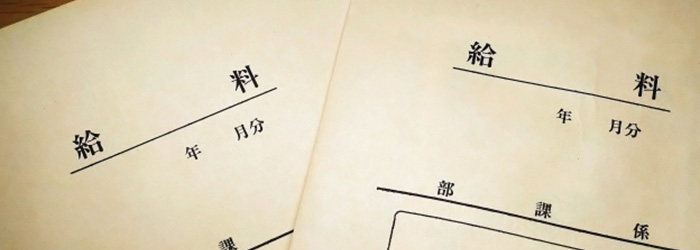 給料
年 月分
課
給料
年 月分
部 課 係